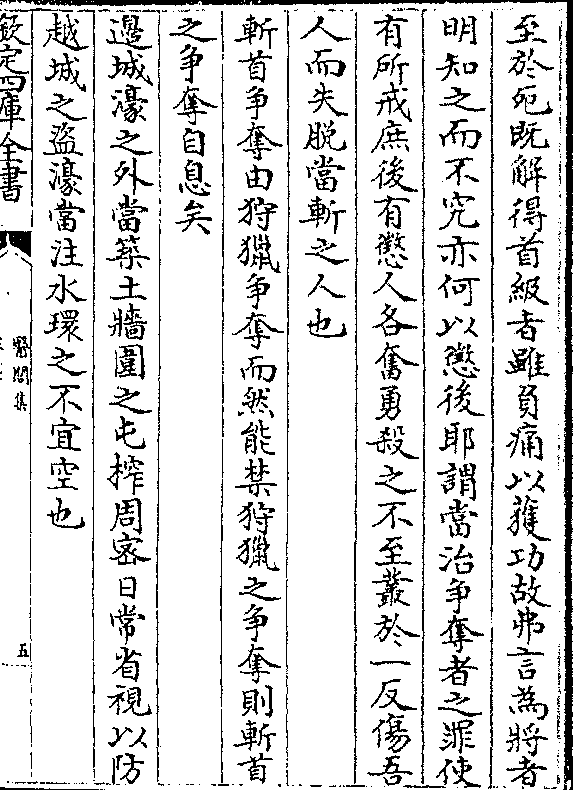 至於死既解得首級者雖負痛以獲功故弗言為將者
明知之而不究亦何以懲後耶謂當治争奪者之罪使
有所戒庶後有懲人各奮勇殺之不至叢於一反傷吾
人而失脱當斬之人也
斬首争奪由狩獵争奪而然能禁狩獵之争奪則斬首
之争奪自息矣
邊城濠之外當築土牆圍之屯搾周宻日常省視以防
越城之盗濠當注水環之不宜空也
欽定四庫全書
醫閭集
五